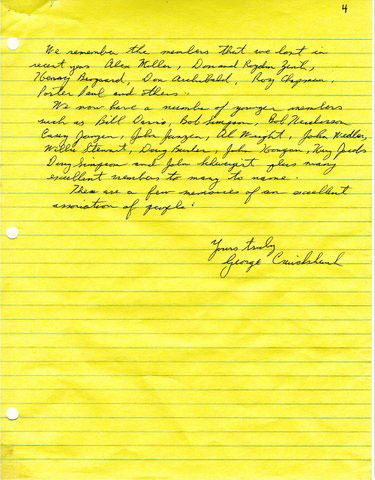 4
We remember the members that we lost in
recent years Alex Miller, Don and Rendon Zink,
Henry Brossard, Don Archibald, Roy Chapman,
Porter Paul and others.
We now have a number of younger members
such as Bill Davis, Bob Simpson, Bob Neukerson
Casey Jongen, John Jongen, Al Wright, John Wedler,
Willis Stewart, Doug Bender, John Kongon, Kay Jacobs
Doug Simpson and John plus many
excellent members to many to name.
These are a few memories of an excellent
association of people.
Yours truly
George Cruickshank